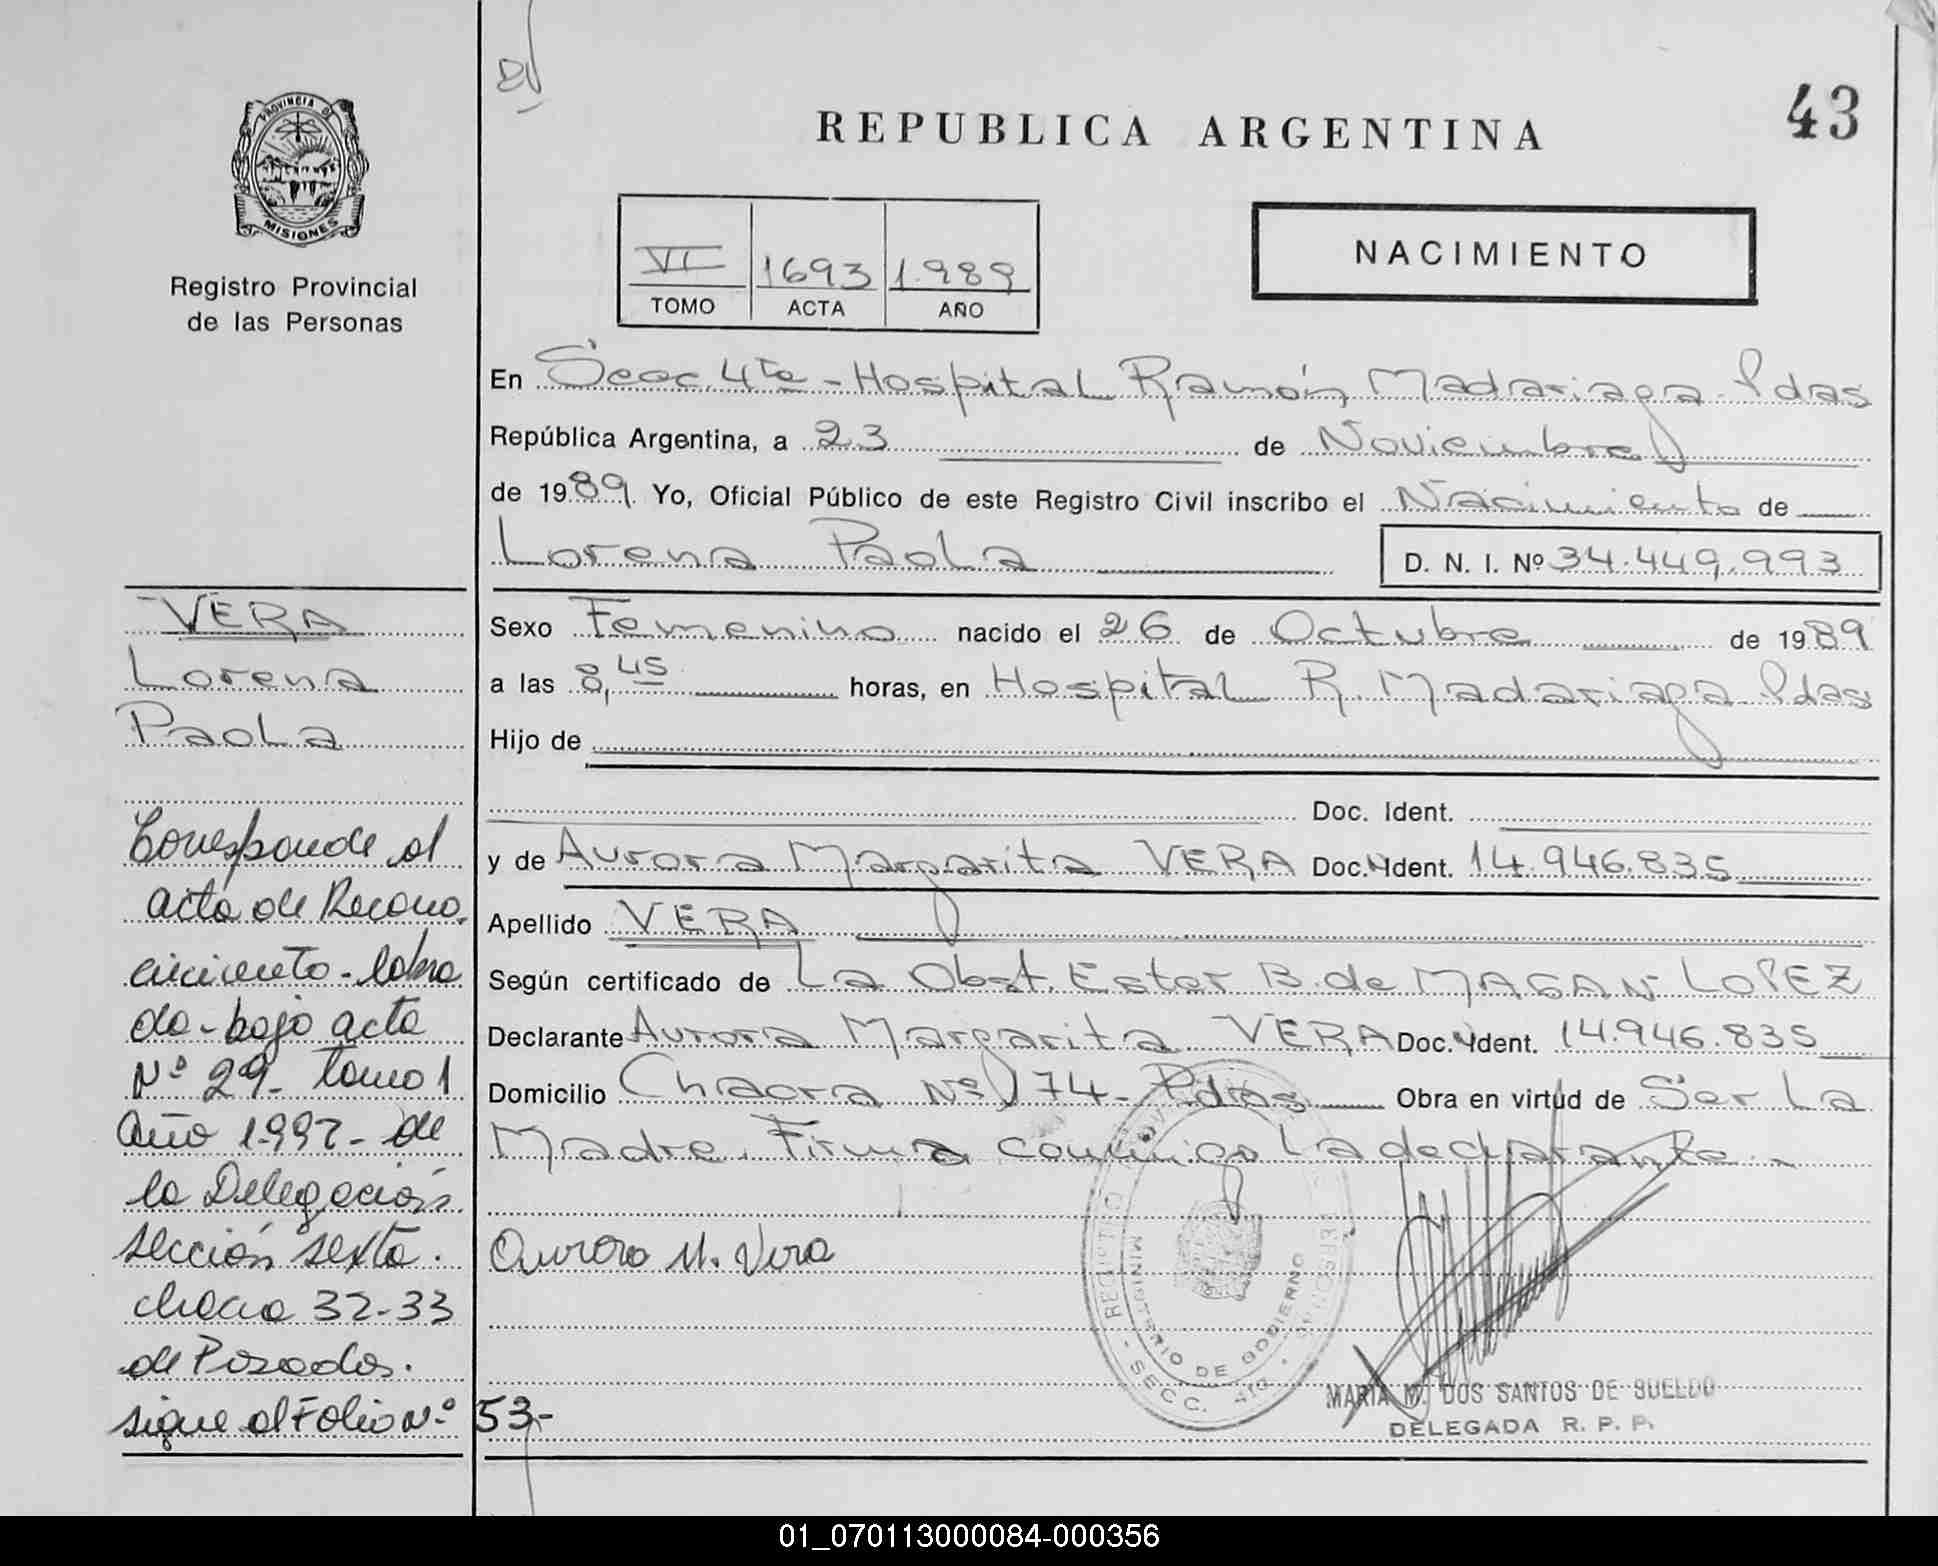 43
REPUBLICA ARGENTINA
PROVINCIA DE
MISIONES
Registro Provincial
de las Personas
VI 1693 1.989
TOMO ACTA AÑO
NACIMIENTO
En Secc. 4ta - Hospital Ramón Madariaga - Pdas
República Argentina, a 23 de Noviembre
de 1989 Yo, Oficial Público de este Registro Civil inscribo el Nacimiento de
Lorena Paola D. N. I. Nº 34.449.993
Sexo Femenino nacido el 26 de Octubre de 1989
a las 8,45 horas, en Hospital R. Madariaga - Pdas
Hijo de
Doc. Ident.
y de Aurora Margarita VERA Doc. Ident. 14.946.835
Apellido VERA
Según certificado de La Obst. Ester B. de MAGAN LOPEZ
Declarante Aurora Margarita VERA Doc. Ident. 14.946.835
Domicilio Chacra Nº 174 - Pdas Obra en virtud de Ser La
Madre. Firma conmigo La declarante -
Aurora M. Vera
REGISTRO PROVINCIAL PERSONAS
MINISTERIO DE GOBIERNO
- SECC. 4ta -
MARIA M. DOS SANTOS DE SUELDO
DELEGADA R. P. P.
VERA
Lorena
Paola
Corresponde al
acta de Recono-
cimiento - labra
da - bajo acta
Nº 29 - tomo 1
Año 1.997 - de
la Delegación
sección sexta.
chacra 32-33
de Posadas.
sigue al Folio Nº 53-
01_070113000084-000356